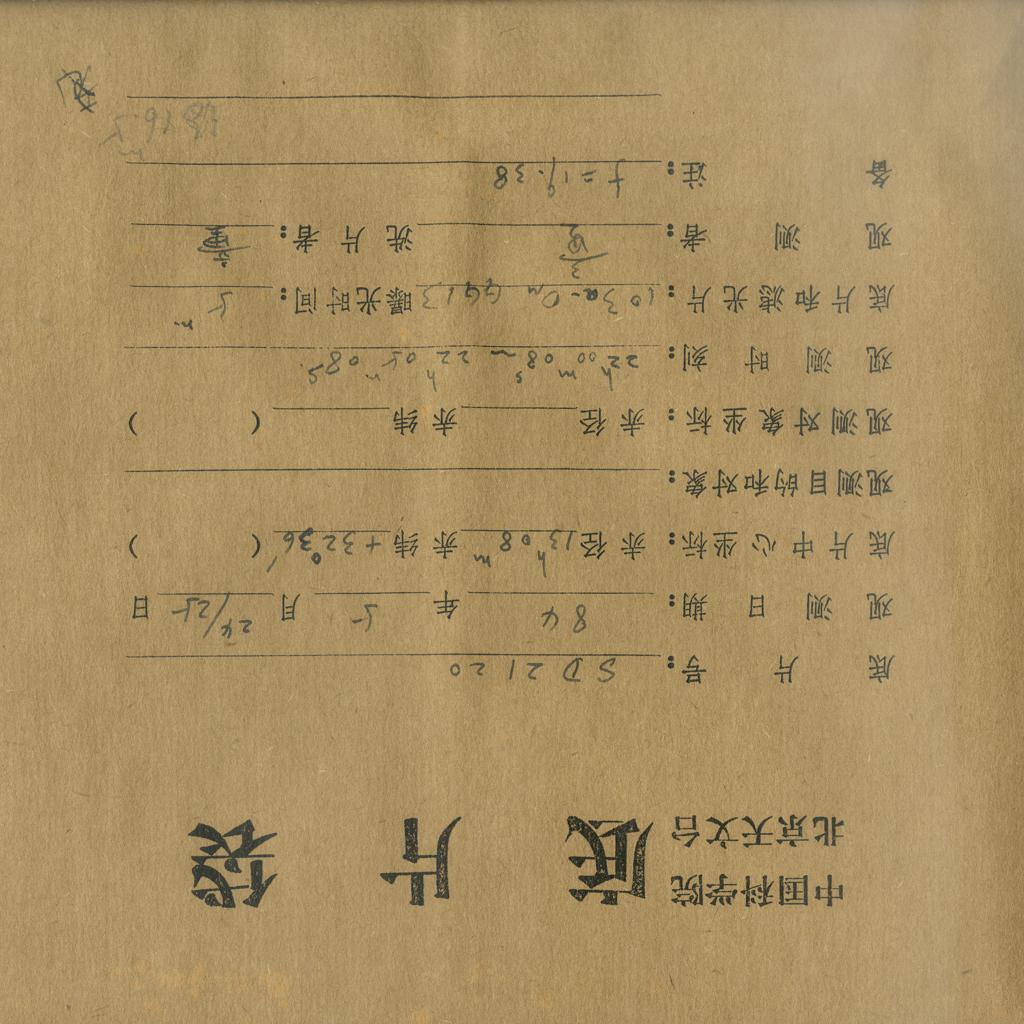 中国科学院
北京天文台
底片袋
底片号: SD2120
观测日期: 84年5月24/25日
底片中心坐标: 赤径13h08m 赤纬+32°36′ ( )
观测目的和对象:
观测对象坐标: 赤径 赤纬 ( )
观测时刻: 22h00m08s~22h05m08s
底片和滤光片: 103a-O GG13 曝光时间: 5m
观测者: 洗片者:
备注: f=19.38